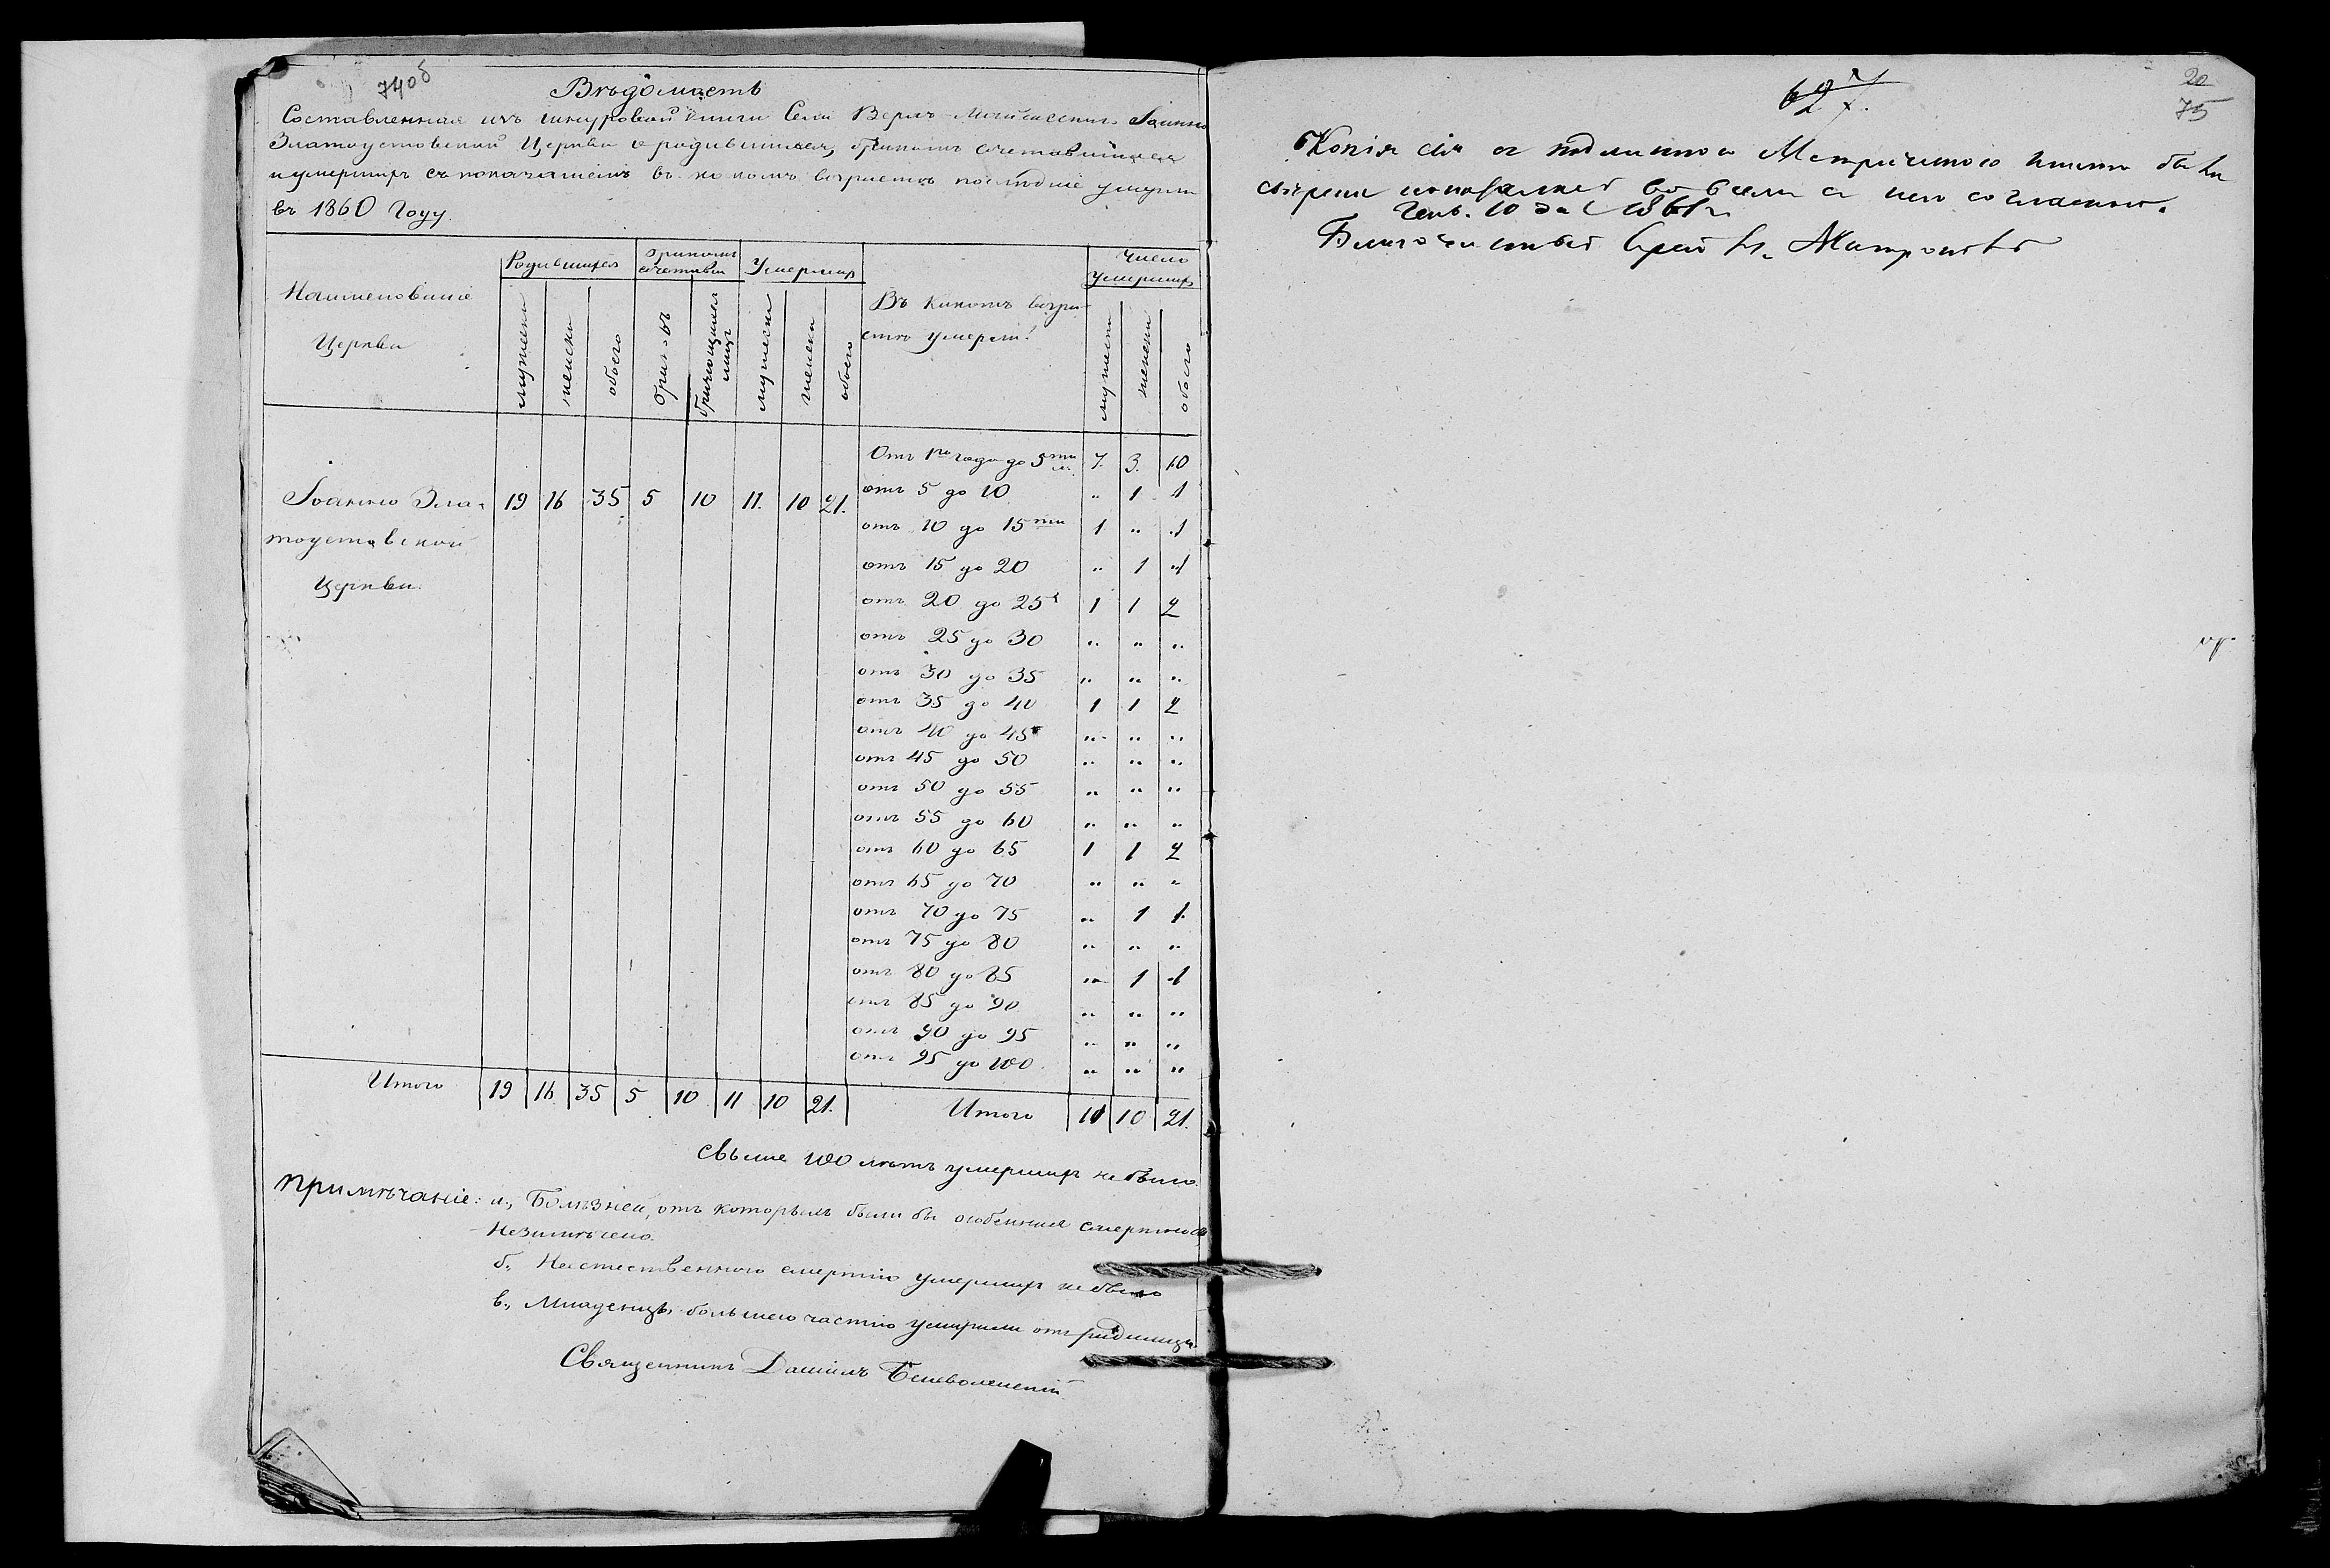 740б
Вѣдомость
Составленная изъ шнуровой книги Села Іоанно
Златоустовской Церкви о родившихся, бракомъ сочетавшихся
и умершихъ съ показаніемъ въ какомъ возрастѣ послѣдніе умерли
въ 1860 Году.
Наименованіе Церкви
Родившихся Бракомъ сочетавш Умершихъ Въ какомъ возра- Число умершихъ
стѣ умерли?
мужеска женска обоего брак-въ лицъ мужеска женска обоего мужеска женска обоего
Отъ 1го года до 5ти л. 7. 3. 10
Іоанно Зла- 19 16 35 5 10 11. 10 21. отъ 5 до 10 " 1 1
тоустовской отъ 10 до 15ти 1 " 1
Церкви. отъ 15 до 20 " 1 1
отъ 20 до 25 1 1 2
отъ 25 до 30 " " "
отъ 30 до 35 " " "
отъ 35 до 40 1 1 2
отъ 40 до 45 " " "
отъ 45 до 50 " " "
отъ 50 до 55 " " "
отъ 55 до 60 " " "
отъ 60 до 65 1 1 2
отъ 65 до 70 " " "
отъ 70 до 75 " 1 1
отъ 75 до 80 " " "
отъ 80 до 85 " 1 1
отъ 85 до 90 " " "
отъ 90 до 95 " " "
отъ 95 до 100 " " "
Итого 19 16 35 5 10 11 10 21. Итого 11 10 21.
Свыше 100 лѣтъ умершихъ не было.
Примѣчаніе: а., Болѣзней, отъ которыхъ были бы особенныя смертнос
Незамѣчено.
б., Неестественного смертію умершихъ не было
в., Младенцы большею частію умирали отъ родимца.
Священникъ Даніилъ Беневоленскій
20
75
Копія сія съ подлинною Метрическою
во всемъ съ нею согласною.
Генв. 10 дня 1861 г.
Благочинный